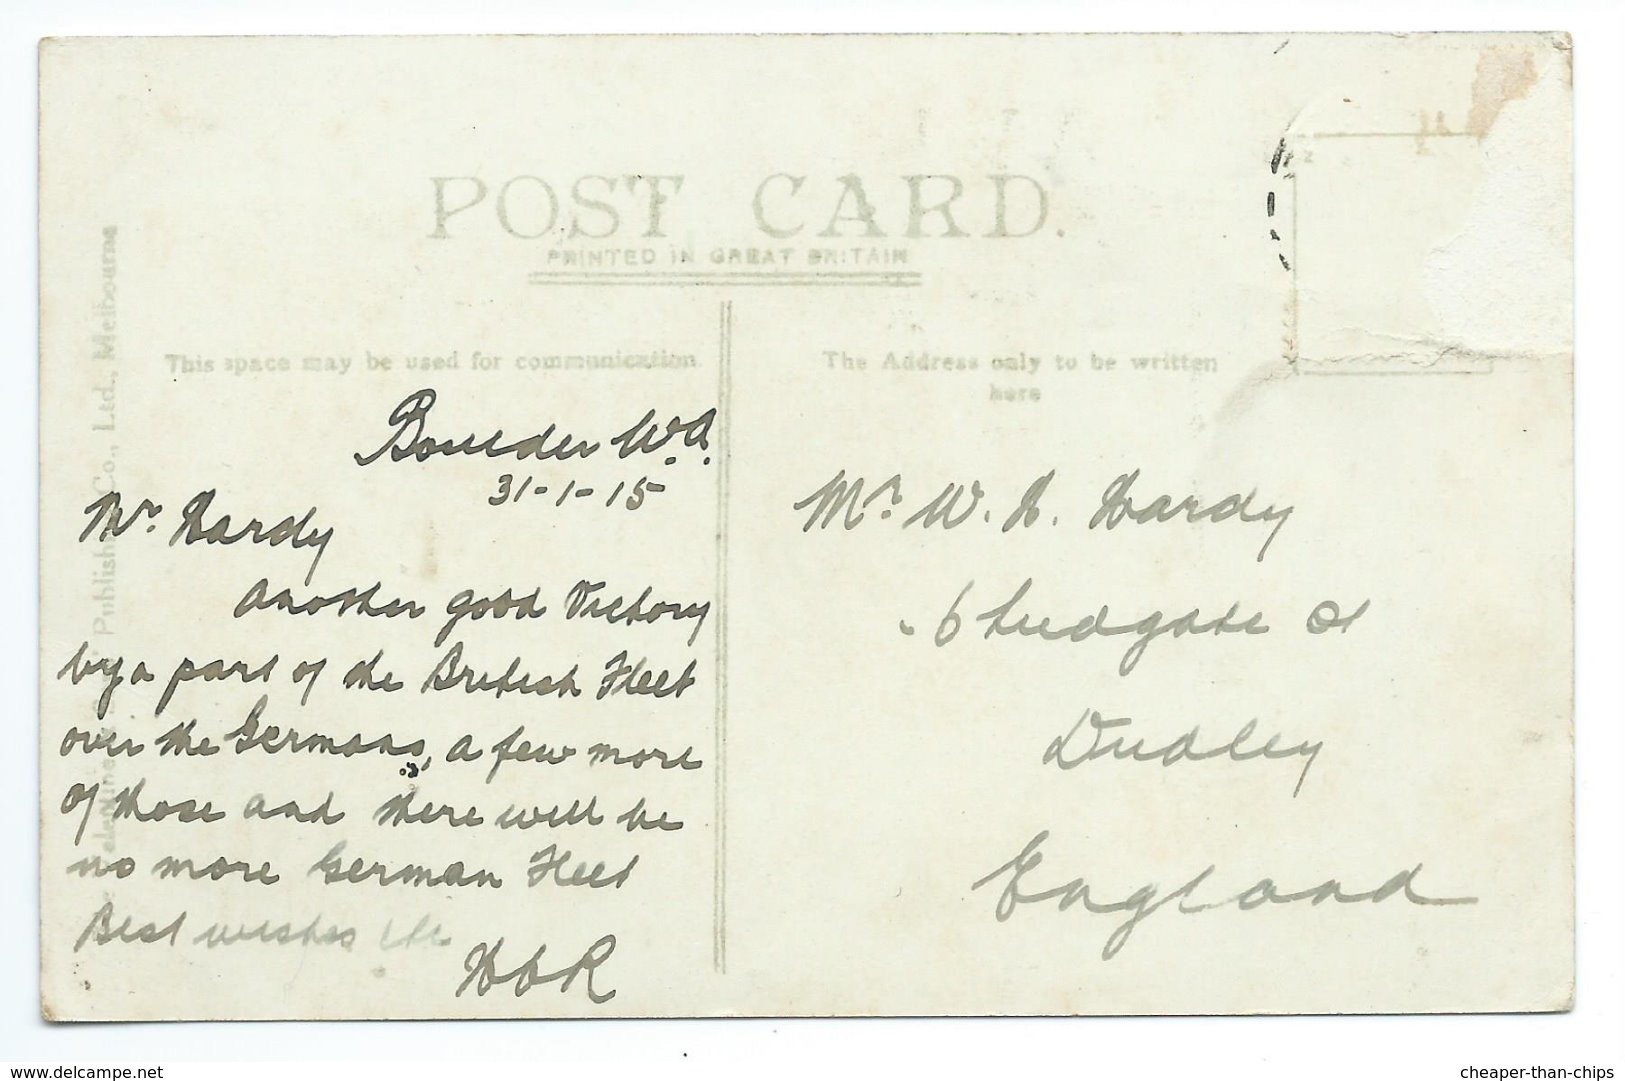 POST CARD.
PRINTED IN GREAT BRITAIN
This space may be used for communication.
The Address only to be written
here
Co., Ltd., Melbourne
Boulder W.A.
31-1-15
Mr. Hardy
Another good Victory
by a part of the British Fleet
over the Germans, a few more
of those and there will be
no more German Fleet
Best wishes etc
Mr. W. H. Hardy
6 Ludgate St
Dudley
England
www.delcampe.net
cheaper-than-chips